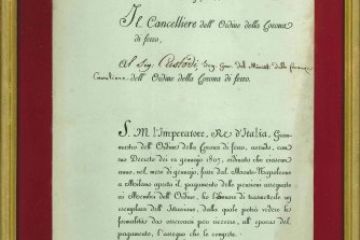 Il Cancelliere dell'Ordine della Corona
di ferro,
Al Sig. Custodi, Seg. Gen. del Minist. delle Finanze
Cavaliere dell'Ordine della Corona di ferro.
S. M. l'Imperatore, Re d'Italia, Gran-
maestro dell'Ordine della Corona di ferro, avendo, con
suo Decreto dei 12 gennajo 1807, ordinato che ciascun
anno, nel mese di gennajo, fosse dal Monte-Napoleone
a Milano aperto il pagamento delle pensioni assegnate
ai Membri dell'Ordine, ho l'onore di trasmetterle un
esemplare dell'Istruzione, dalla quale potrà vedere le
formalità che occorrono per ricevere, all'epoca del
pagamento, l'assegno che le compete.